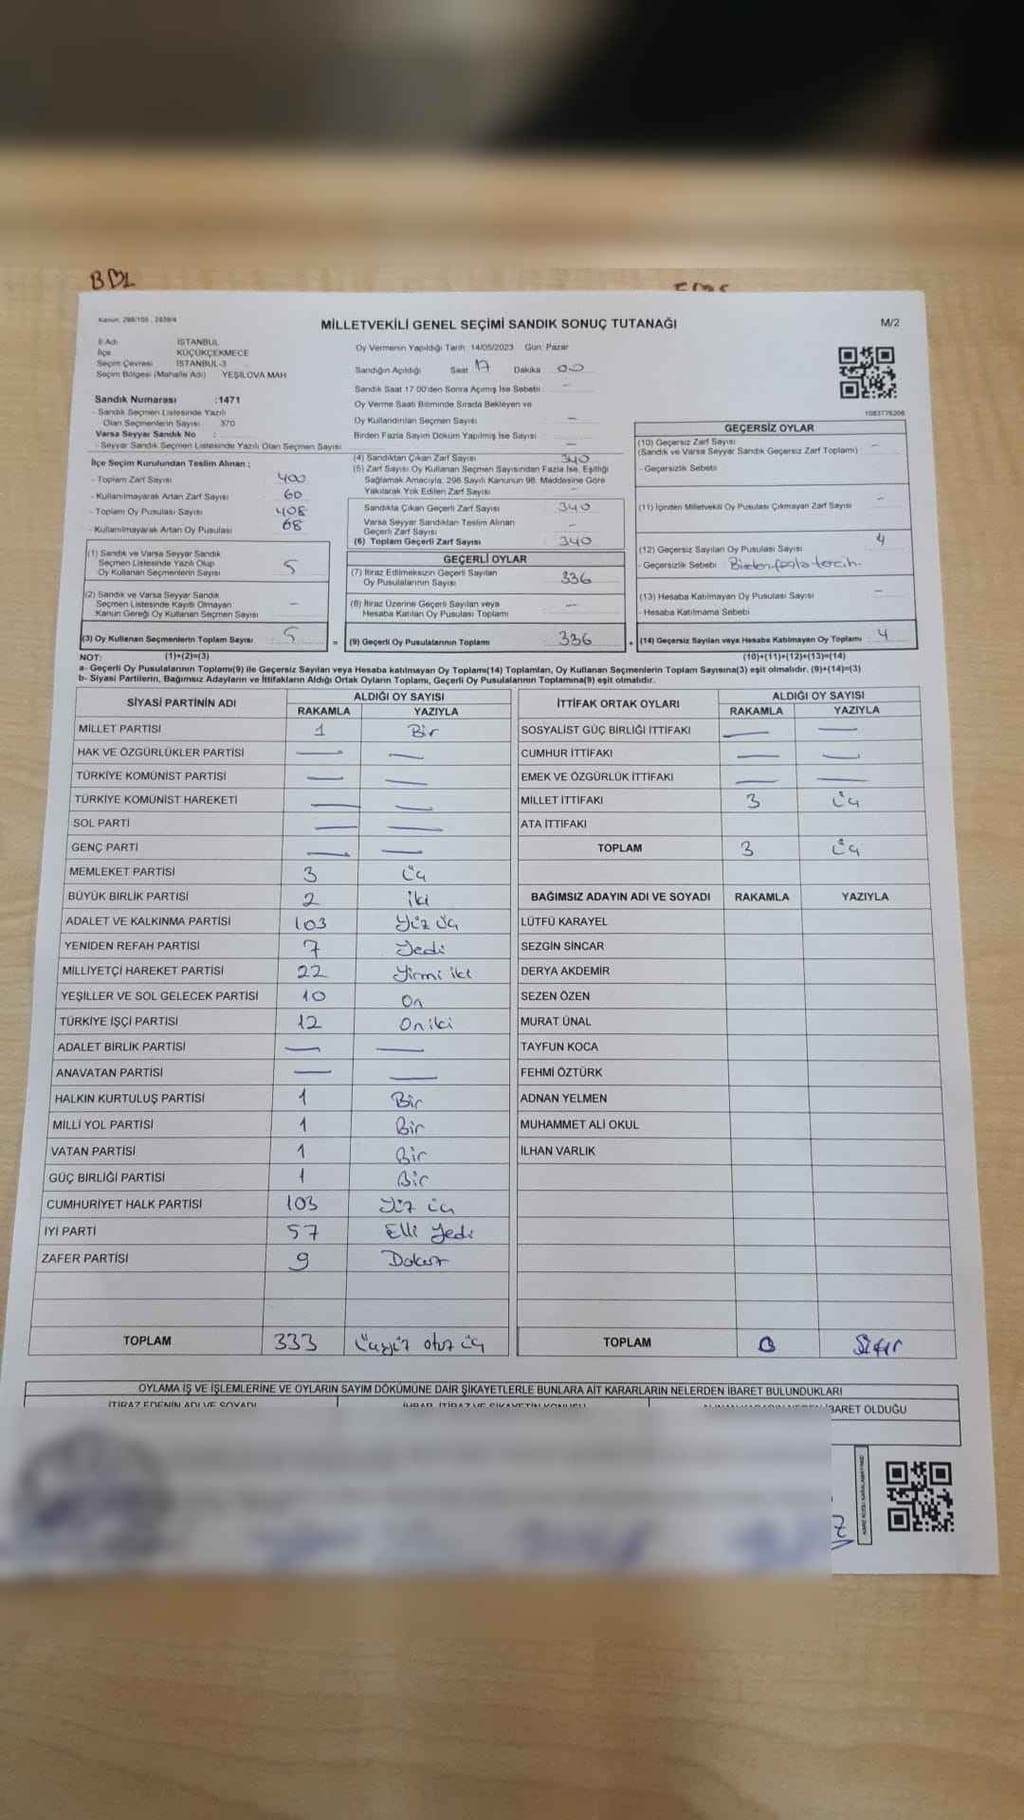 BDL
Kanun: 298/105 , 2839/4
MİLLETVEKİLİ GENEL SEÇİMİ SANDIK SONUÇ TUTANAĞI
M/2
İl Adı : İSTANBUL
İlçe : KÜÇÜKÇEKMECE
Seçim Çevresi : İSTANBUL-3
Seçim Bölgesi (Mahalle Adı) : YEŞİLOVA MAH
Sandık Numarası :1471
- Sandık Seçmen Listesinde Yazılı
Olan Seçmenlerin Sayısı : 370
Varsa Seyyar Sandık No :
- Seyyar Sandık Seçmen Listesinde Yazılı Olan Seçmen Sayısı
İlçe Seçim Kurulundan Teslim Alınan ;
- Toplam Zarf Sayısı 400
- Kullanılmayarak Artan Zarf Sayısı 60
- Toplam Oy Pusulası Sayısı 408
- Kullanılmayarak Artan Oy Pusulası 68
(1) Sandık ve Varsa Seyyar Sandık
Seçmen Listesinde Yazılı Olup
Oy Kullanan Seçmenlerin Sayısı 5
(2) Sandık ve Varsa Seyyar Sandık
Seçmen Listesinde Kayıtlı Olmayan
Kanun Gereği Oy Kullanan Seçmen Sayısı —
(3) Oy Kullanan Seçmenlerin Toplam Sayısı 5
Oy Vermenin Yapıldığı Tarih: 14/05/2023 Gün: Pazar
Sandığın Açıldığı Saat 17 Dakika 00
Sandık Saat 17:00'den Sonra Açılmış İse Sebebi —
Oy Verme Saati Bitiminde Sırada Bekleyen ve
Oy Kullandırılan Seçmen Sayısı —
Birden Fazla Sayım Döküm Yapılmış İse Sayısı —
(4) Sandıktan Çıkan Zarf Sayısı 340
(5) Zarf Sayısı Oy Kullanan Seçmen Sayısından Fazla İse, Eşitliği
Sağlamak Amacıyla, 298 Sayılı Kanunun 98. Maddesine Göre
Yakılarak Yok Edilen Zarf Sayısı —
Sandıkta Çıkan Geçerli Zarf Sayısı 340
Varsa Seyyar Sandıktan Teslim Alınan
Geçerli Zarf Sayısı —
(6) Toplam Geçerli Zarf Sayısı 340
GEÇERLİ OYLAR
(7) İtiraz Edilmeksizin Geçerli Sayılan
Oy Pusulalarının Sayısı 336
(8) İtiraz Üzerine Geçerli Sayılan veya
Hesaba Katılan Oy Pusulası Toplamı —
= (9) Geçerli Oy Pusulalarının Toplamı 336
1083776206
GEÇERSİZ OYLAR
(10) Geçersiz Zarf Sayısı —
(Sandık ve Varsa Seyyar Sandık Geçersiz Zarf Toplamı)
- Geçersizlik Sebebi
(11) İçinden Milletvekili Oy Pusulası Çıkmayan Zarf Sayısı —
(12) Geçersiz Sayılan Oy Pusulası Sayısı 4
- Geçersizlik Sebebi Birden fazla tercih.
(13) Hesaba Katılmayan Oy Pusulası Sayısı —
- Hesaba Katılmama Sebebi
+ (14) Geçersiz Sayılan veya Hesaba Katılmayan Oy Toplamı 4
NOT: (1)+(2)=(3) (10)+(11)+(12)+(13)=(14)
a- Geçerli Oy Pusulalarının Toplamı(9) ile Geçersiz Sayılan veya Hesaba katılmayan Oy Toplamı(14) Toplamları, Oy Kullanan Seçmenlerin Toplam Sayısına(3) eşit olmalıdır. (9)+(14)=(3)
b- Siyasi Partilerin, Bağımsız Adayların ve İttifakların Aldığı Ortak Oyların Toplamı, Geçerli Oy Pusulalarının Toplamına(9) eşit olmalıdır.
SİYASİ PARTİNİN ADI ALDIĞI OY SAYISI
RAKAMLA YAZIYLA
MİLLET PARTİSİ 1 Bir
HAK VE ÖZGÜRLÜKLER PARTİSİ — —
TÜRKİYE KOMÜNİST PARTİSİ — —
TÜRKİYE KOMÜNİST HAREKETİ — —
SOL PARTİ — —
GENÇ PARTİ — —
MEMLEKET PARTİSİ 3 üç
BÜYÜK BİRLİK PARTİSİ 2 iki
ADALET VE KALKINMA PARTİSİ 103 Yüz üç
YENİDEN REFAH PARTİSİ 7 Yedi
MİLLİYETÇİ HAREKET PARTİSİ 22 Yirmi iki
YEŞİLLER VE SOL GELECEK PARTİSİ 10 On
TÜRKİYE İŞÇİ PARTİSİ 12 On iki
ADALET BİRLİK PARTİSİ — —
ANAVATAN PARTİSİ — —
HALKIN KURTULUŞ PARTİSİ 1 Bir
MİLLİ YOL PARTİSİ 1 Bir
VATAN PARTİSİ 1 Bir
GÜÇ BİRLİĞİ PARTİSİ 1 Bir
CUMHURİYET HALK PARTİSİ 103 Yüz üç
İYİ PARTİ 57 Elli Yedi
ZAFER PARTİSİ 9 Dokuz
TOPLAM 333 Üçyüz otuz üç
İTTİFAK ORTAK OYLARI ALDIĞI OY SAYISI
RAKAMLA YAZIYLA
SOSYALİST GÜÇ BİRLİĞİ İTTİFAKI — —
CUMHUR İTTİFAKI — —
EMEK VE ÖZGÜRLÜK İTTİFAKI — —
MİLLET İTTİFAKI 3 üç
ATA İTTİFAKI
TOPLAM 3 üç
BAĞIMSIZ ADAYIN ADI VE SOYADI RAKAMLA YAZIYLA
LÜTFÜ KARAYEL
SEZGİN SİNCAR
DERYA AKDEMİR
SEZEN ÖZEN
MURAT ÜNAL
TAYFUN KOCA
FEHMİ ÖZTÜRK
ADNAN YELMEN
MUHAMMET ALİ OKUL
İLHAN VARLIK
TOPLAM 0 Sıfır
OYLAMA İŞ VE İŞLEMLERİNE VE OYLARIN SAYIM DÖKÜMÜNE DAİR ŞİKAYETLERLE BUNLARA AİT KARARLARIN NELERDEN İBARET BULUNDUKLARI
İTİRAZ EDENİN ADI VE SOYADI İHBAR, İTİRAZ VE ŞİKAYETİN KONUSU BARET OLDUĞU